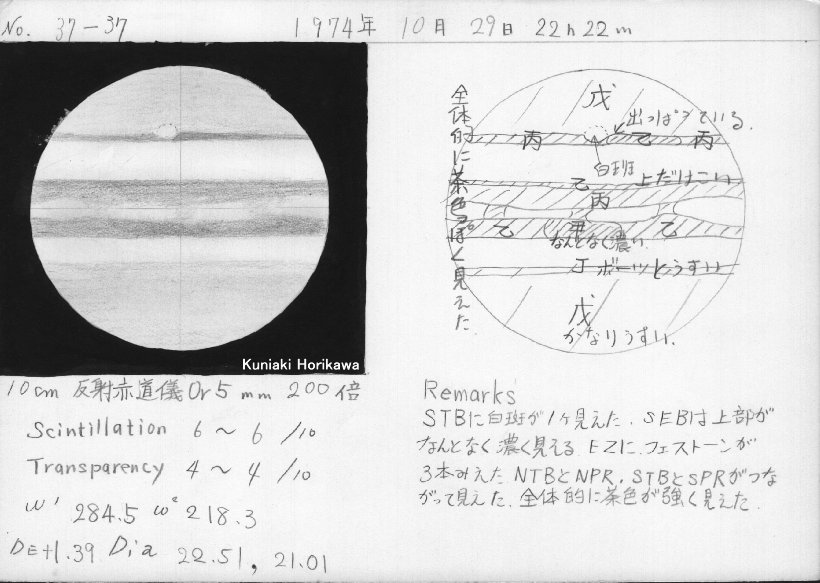 No. 37-37
1974年 10月 29日 22h22m
全体的に茶色っぽく見えた.
戊
出っぱっている.
丙
乙
丙
白斑
乙 上だけこい
丙
乙 甲 乙
なんとなく濃い.
丁 ボーッとうすい
戊
かなりうすい.
Kuniaki Horikawa
10cm 反射赤道儀 Or5mm 200倍
Scintillation 6~6 /10
Transparency 4~4 /10
ω¹ 284.5 ω² 218.3
DE+1.39 Dia 22.51, 21.01
Remarks
STBに白斑が1ヶ見えた. SEBは上部が
なんとなく濃く見える EZに、フェストーンが
3本みえた. NTBとNPR, STBとSPRがつな
がって見えた. 全体的に茶色が強く見えた.